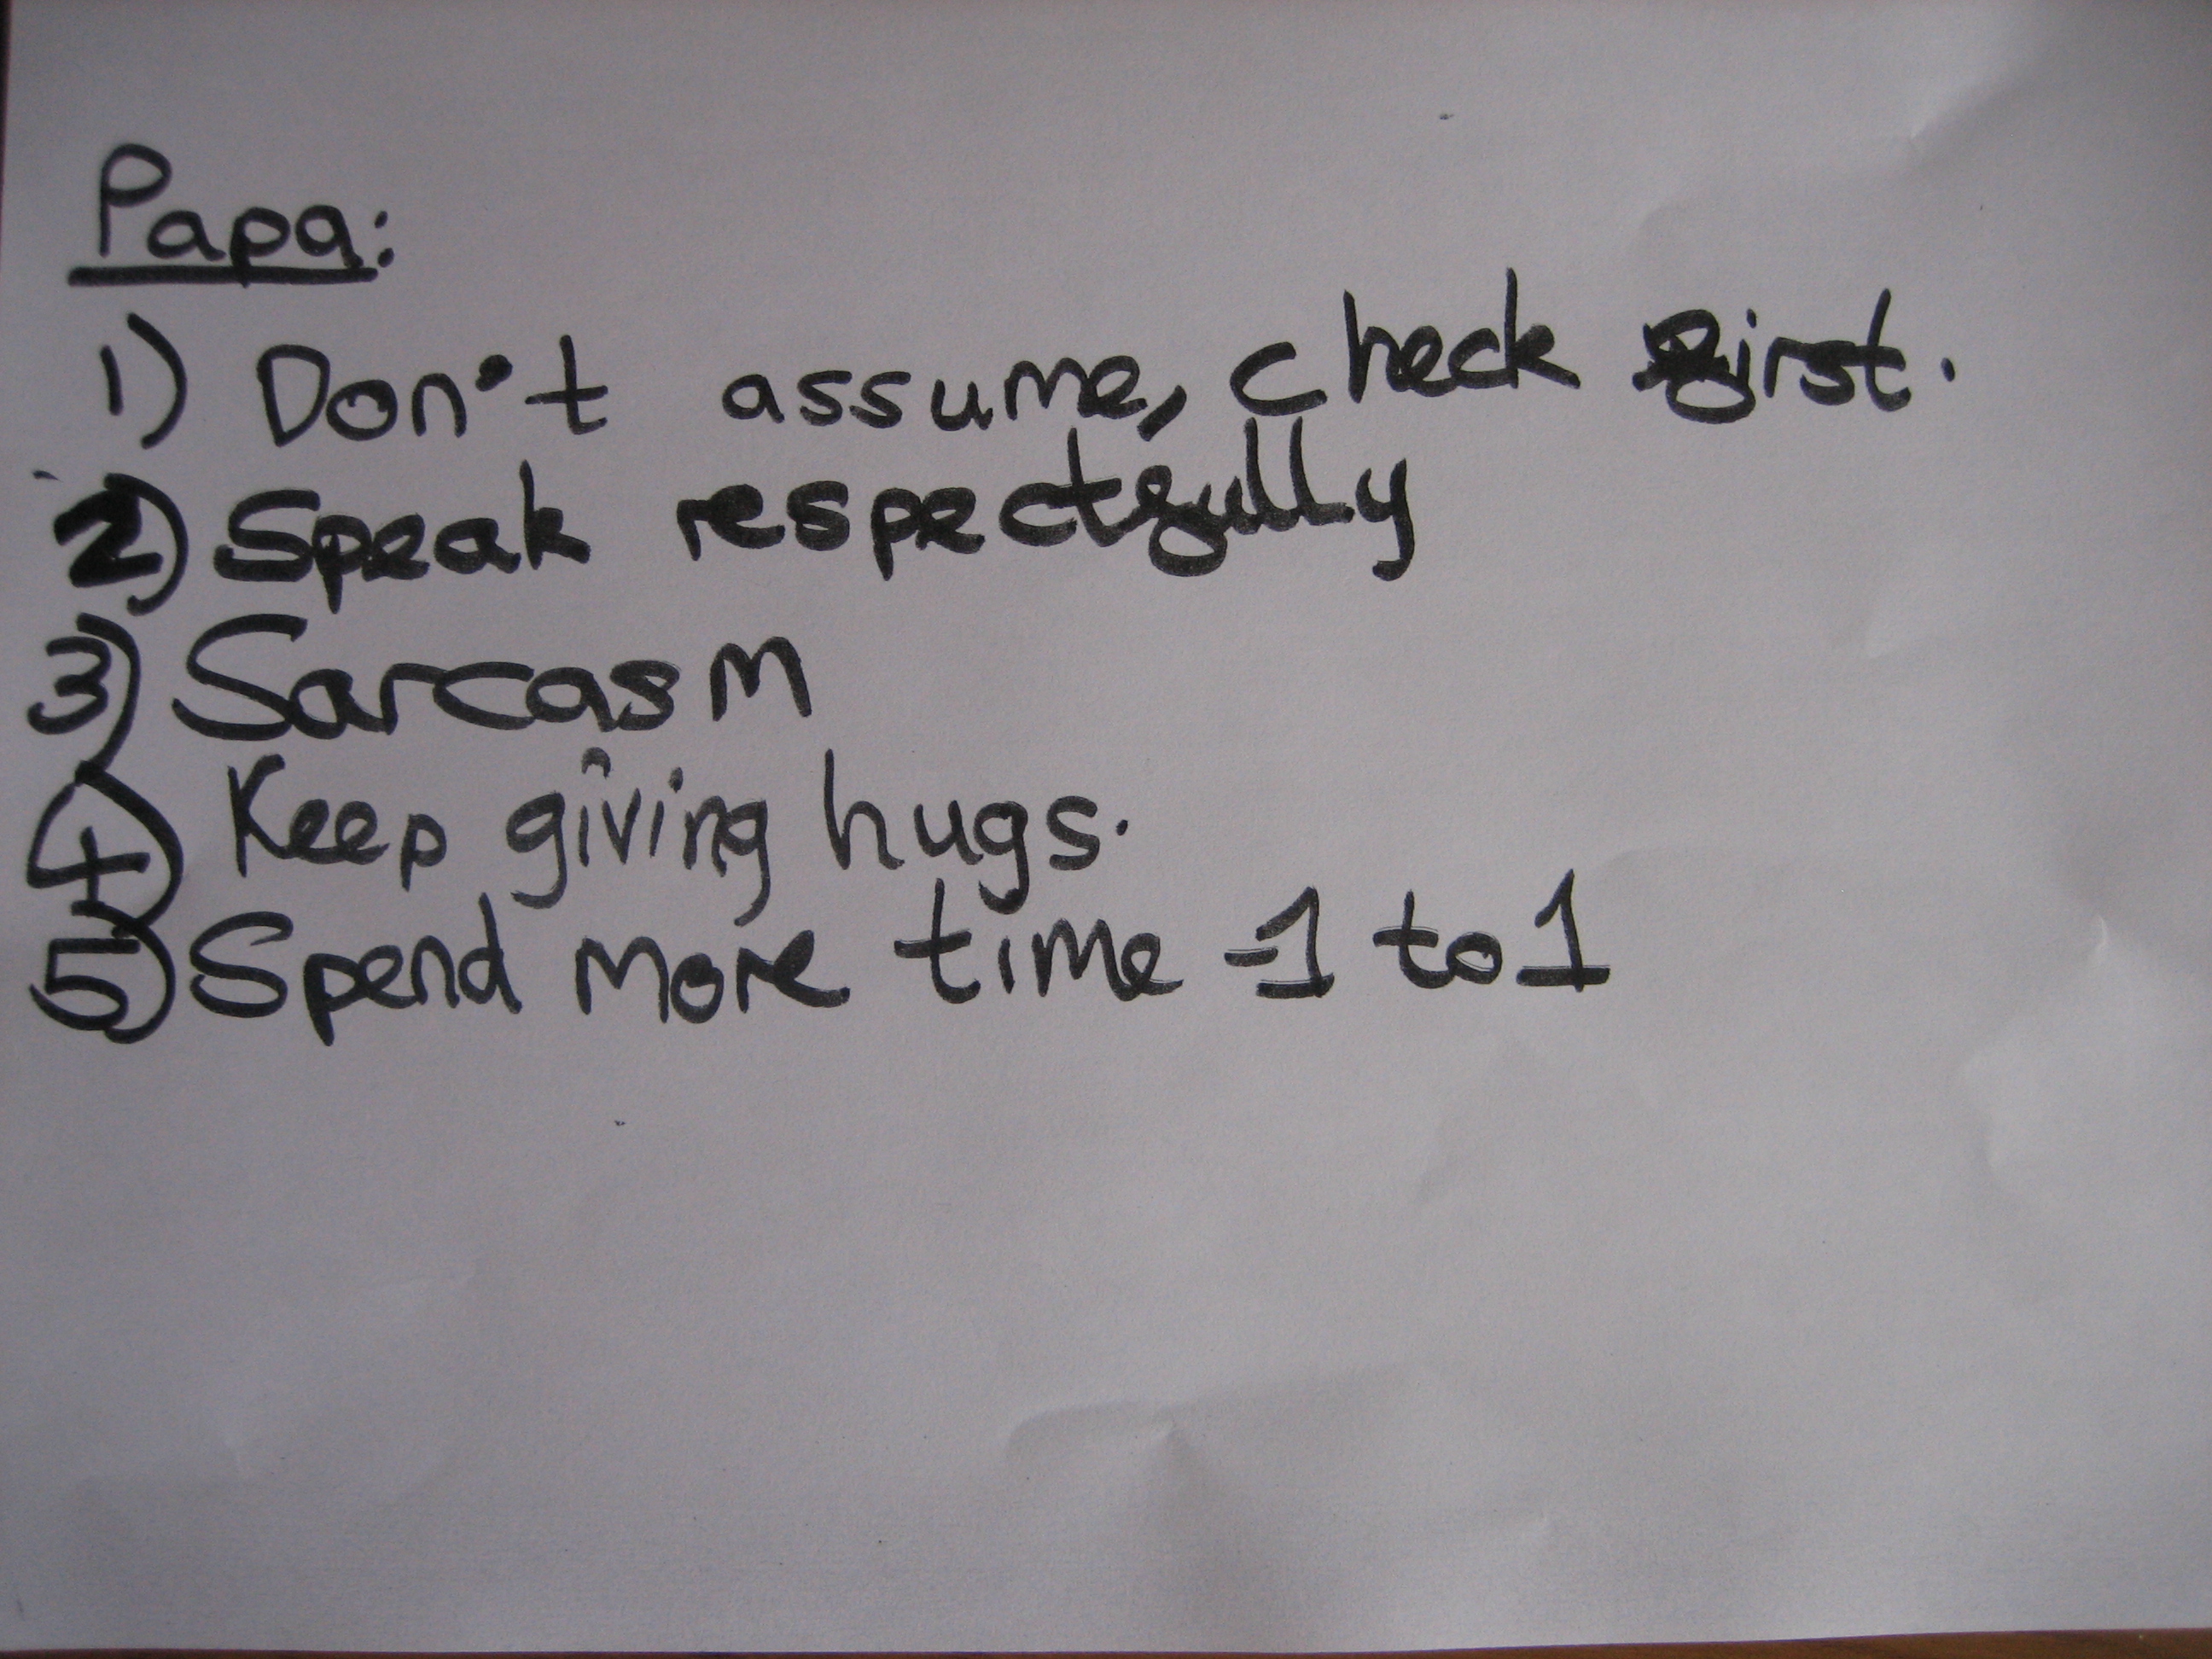 Papa:
1) Don't assume, check first.
2) Speak respectfully
3) Sarcasm
4) Keep giving hugs.
5) Spend more time -1 to 1